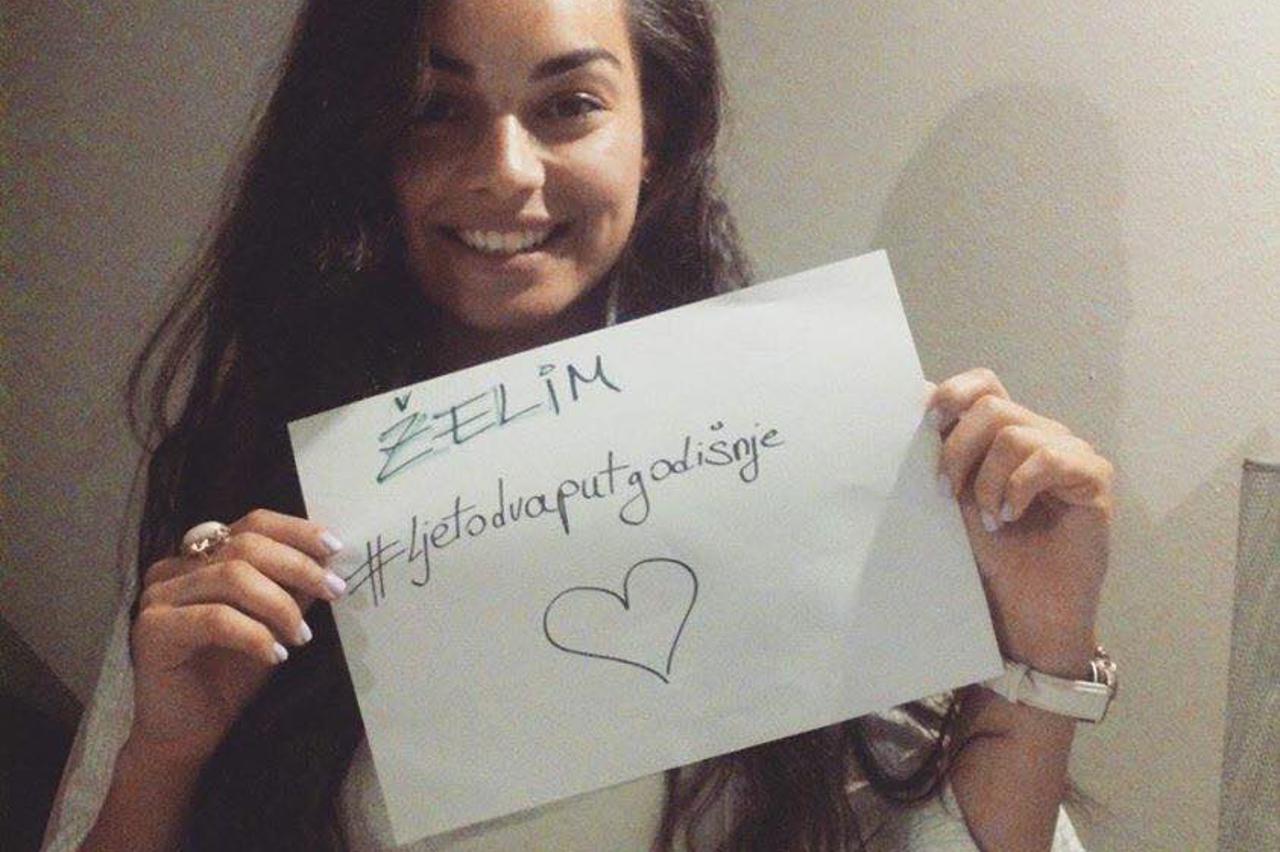 ŽELiM
#ljetodvaputgodišnje